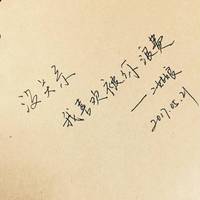 没关系
我喜欢被你浪费
2017.05.21